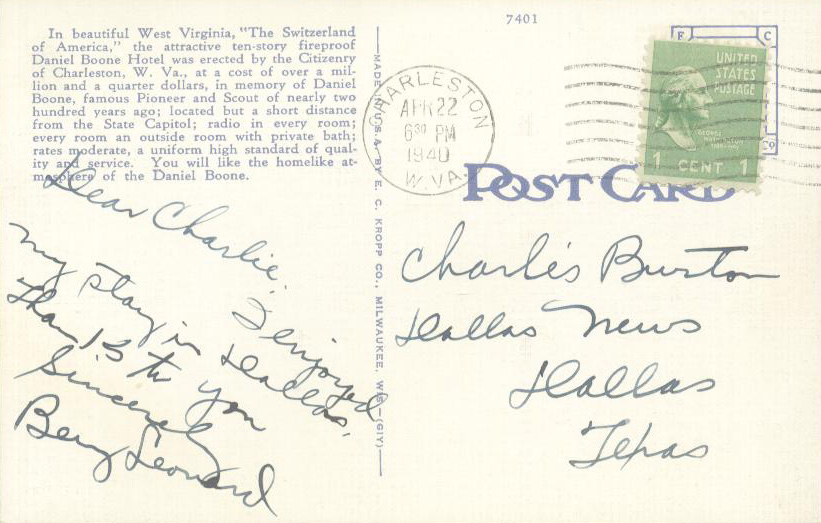 In beautiful West Virginia, "The Switzerland
of America," the attractive ten-story fireproof
Daniel Boone Hotel was erected by the Citizenry
of Charleston, W. Va., at a cost of over a mil-
lion and a quarter dollars, in memory of Daniel
Boone, famous Pioneer and Scout of nearly two
hundred years ago; located but a short distance
from the State Capitol; radio in every room;
every room an outside room with private bath;
rates moderate, a uniform high standard of qual-
ity and service. You will like the homelike at-
mosphere of the Daniel Boone.
Dear Charlie.
I enjoyed
my stay in Dallas.
Thanks to you
Sincerely
Benny Leonard
MADE IN U.S.A. BY E. C. KROPP CO., MILWAUKEE, WIS.—(GIY)
7401
CHARLESTON
APR 22
6 30 PM
1940
W. VA.
E C
Co
UNITED
STATES
POSTAGE
GEORGE
WASHINGTON
1 CENT 1
POST CARD
Charlie's Burton
Dallas News
Dallas
Texas